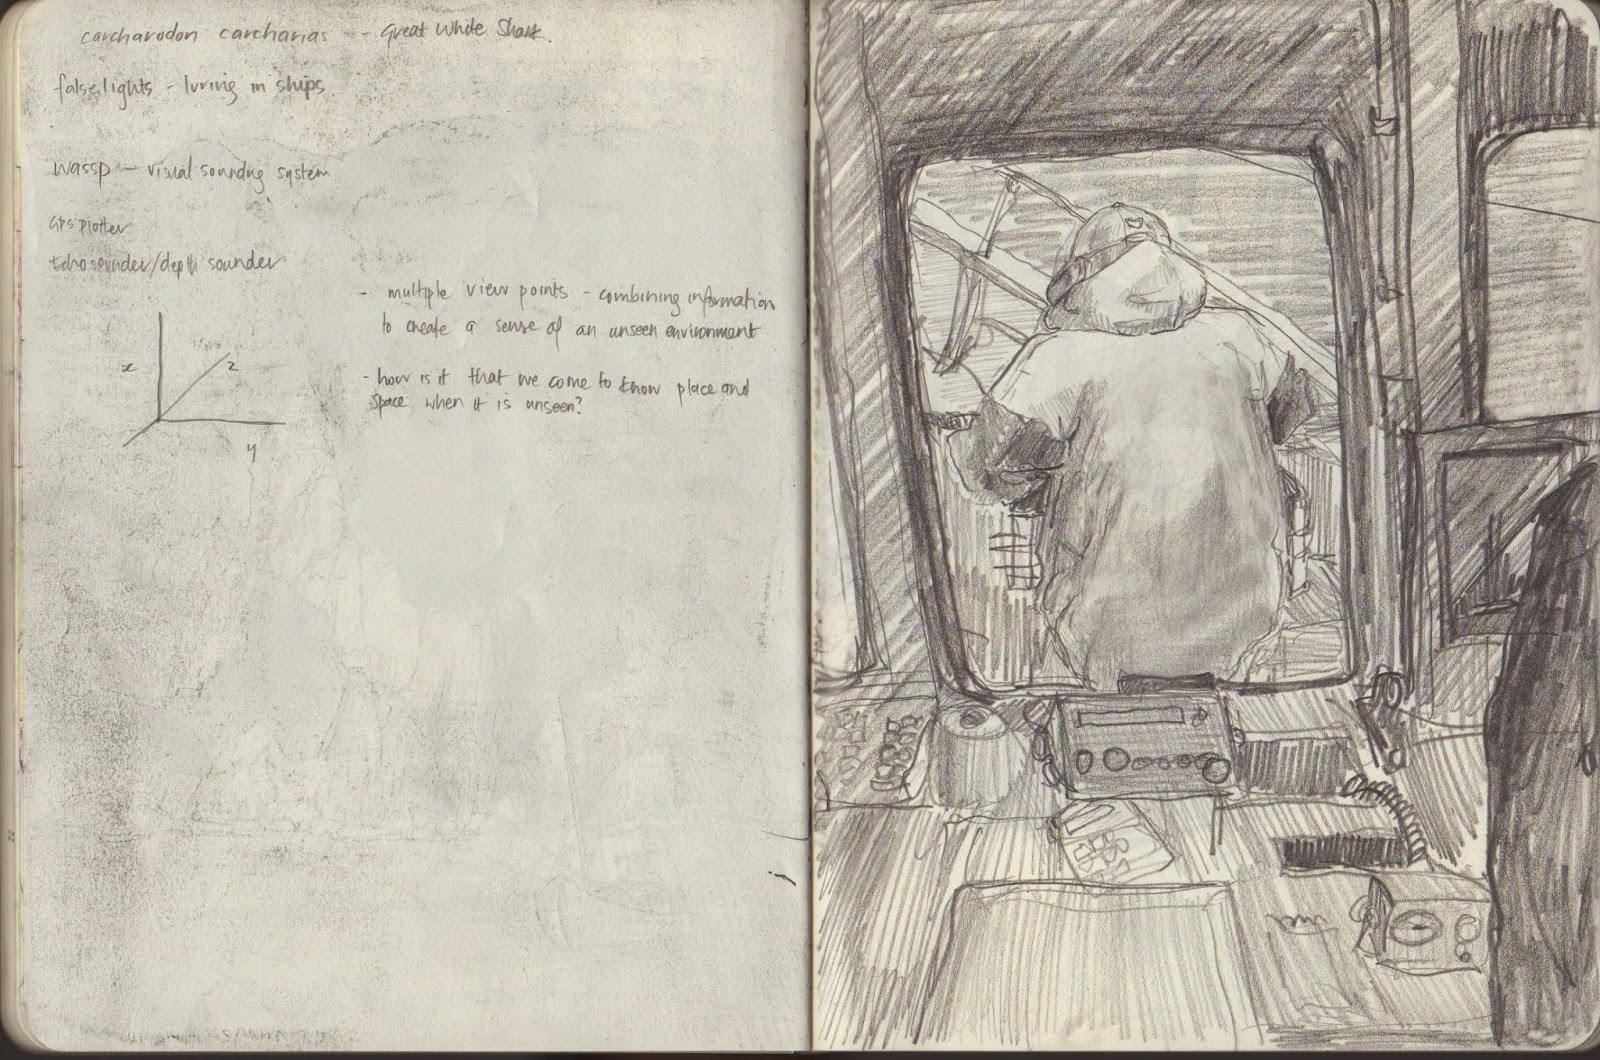 carcharodon carcharias - Great White Shark.
false lights - luring in ships
WASSP - visual sounding system
GPS plotter
Echosounder/depth sounder
- multiple view points - combining information
to create a sense of an unseen environment
- how is it that we come to know place and
space when it is unseen?
x
z
y